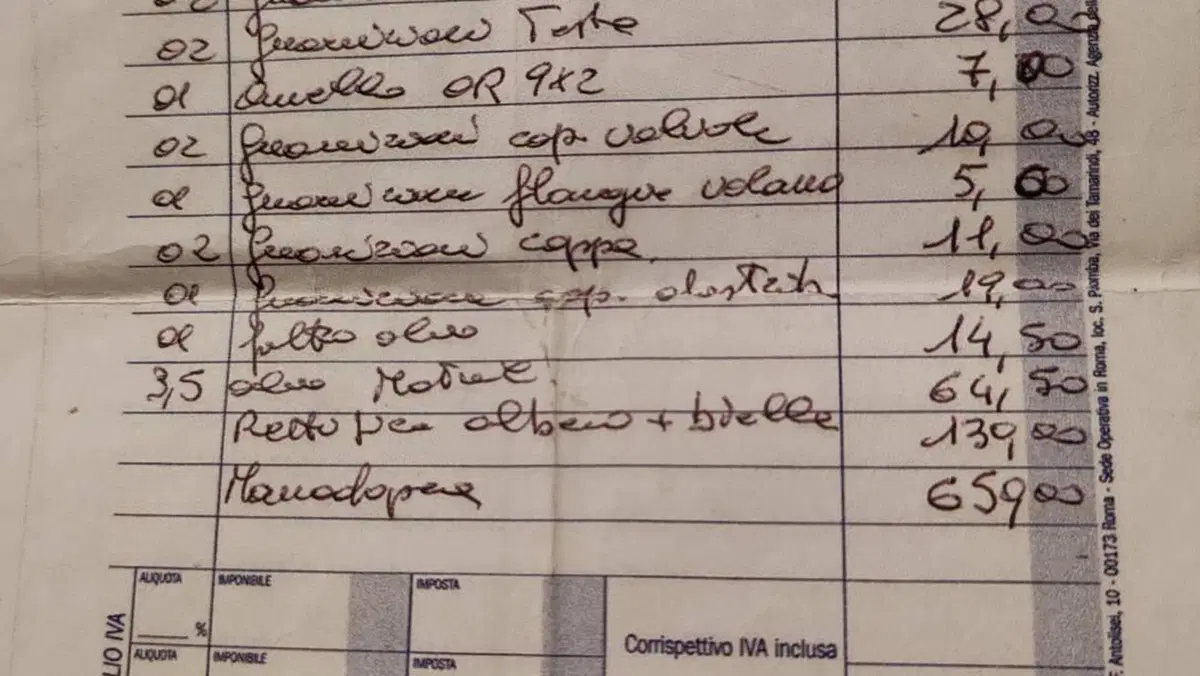 02 Guarnizioni Teste 28,00
01 Anello OR 9x2 7,00
02 Guarnizioni cop. valvole 10,00
01 Guarnizione flangia volano 5,60
02 Guarnizioni coppa 11,00
01 Guarnizione cop. 19,00
01 filtro olio 14,50
3,5 olio Motul 64,50
Rettifica albero + bielle 139,00
Manodopera 659 00
ALIQUOTA IMPONIBILE IMPOSTA
%
Corrispettivo IVA inclusa
ALIQUOTA IMPONIBILE IMPOSTA
LIO IVA
F. Antolisei, 10 - 00173 Roma - Sede Operativa in Roma, loc. S. Piomba, Via dei Tamarindi, 48 - Autorizz. Agenzia